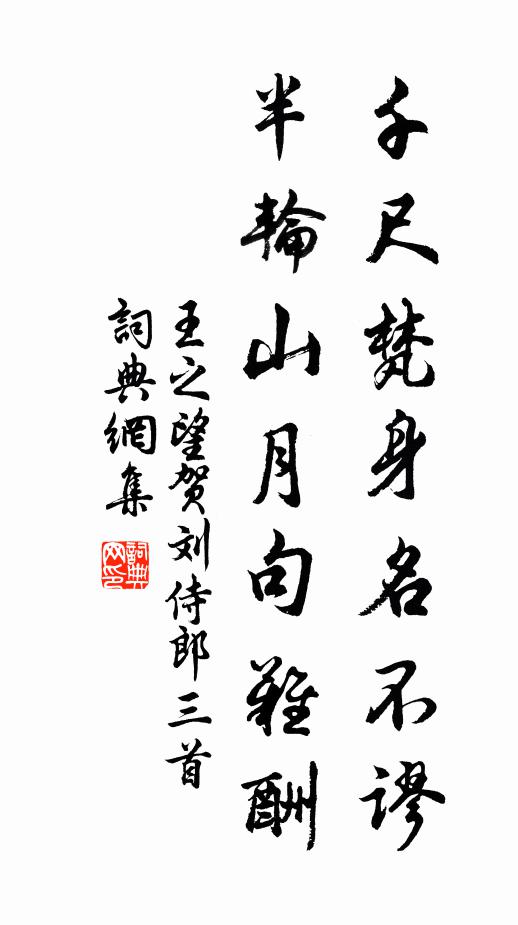 千尺梵身名不谬
半輪山月句難酬
王之望賀刘侍郎三首
詞典網集
詞典网印